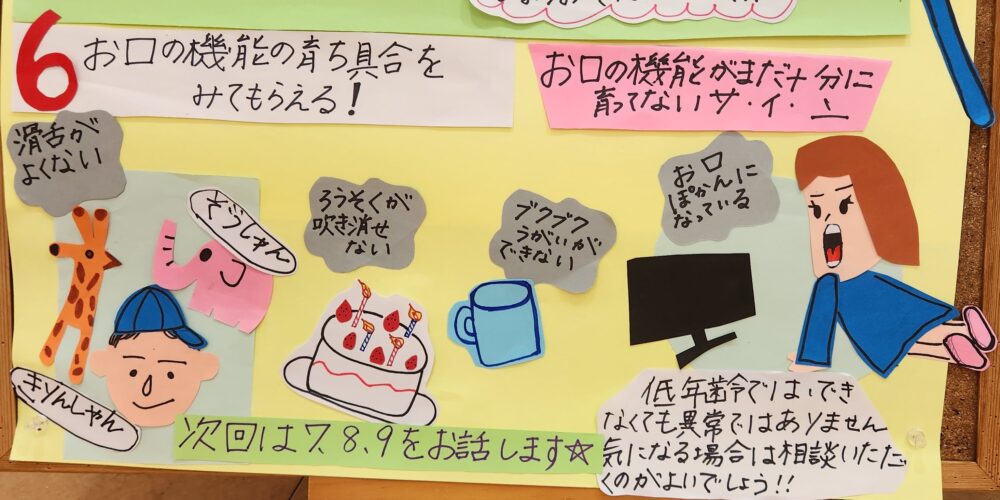 6
お口の機能の育ち具合を
みてもらえる!
お口の機能がまだ十分に
育ってないサ・イ・ン
滑舌が
よくない
ぞうしゃん
きりんしゃん
ろうそくが
吹き消せ
ない
ブクブク
うがいが
できない
お口
ぽかんに
なっている
低年齢ではいでき
なくても異常ではありません
気になる場合は相談いただ
くのがよいでしょう!!
次回は7.8.9をお話します☆